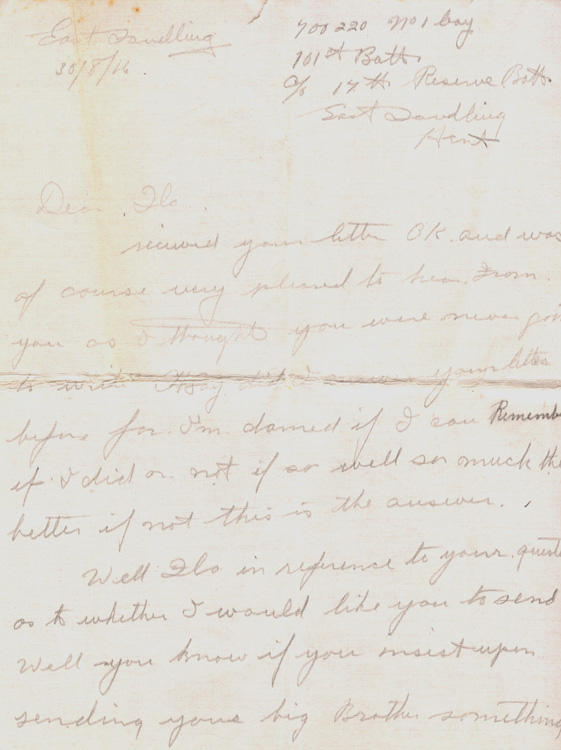 East Sandling
30/8/16
700220 No 1 Coy
101st Batt.
c/o 17th Reserve Batt.
East Sandling
Kent
Dear Flo.
recieved your letter OK. and was
of course very pleased to hear from
you as I thought you were never goin
to write. Say did I answer your letter
before for I'm damed if I can Rememb
if I did or not if so well so much the
better if not this is the answer.
Well Flo in reference to your questi
as to whether I would like you to send
Well you know if you insist upon
sending your big Brother something